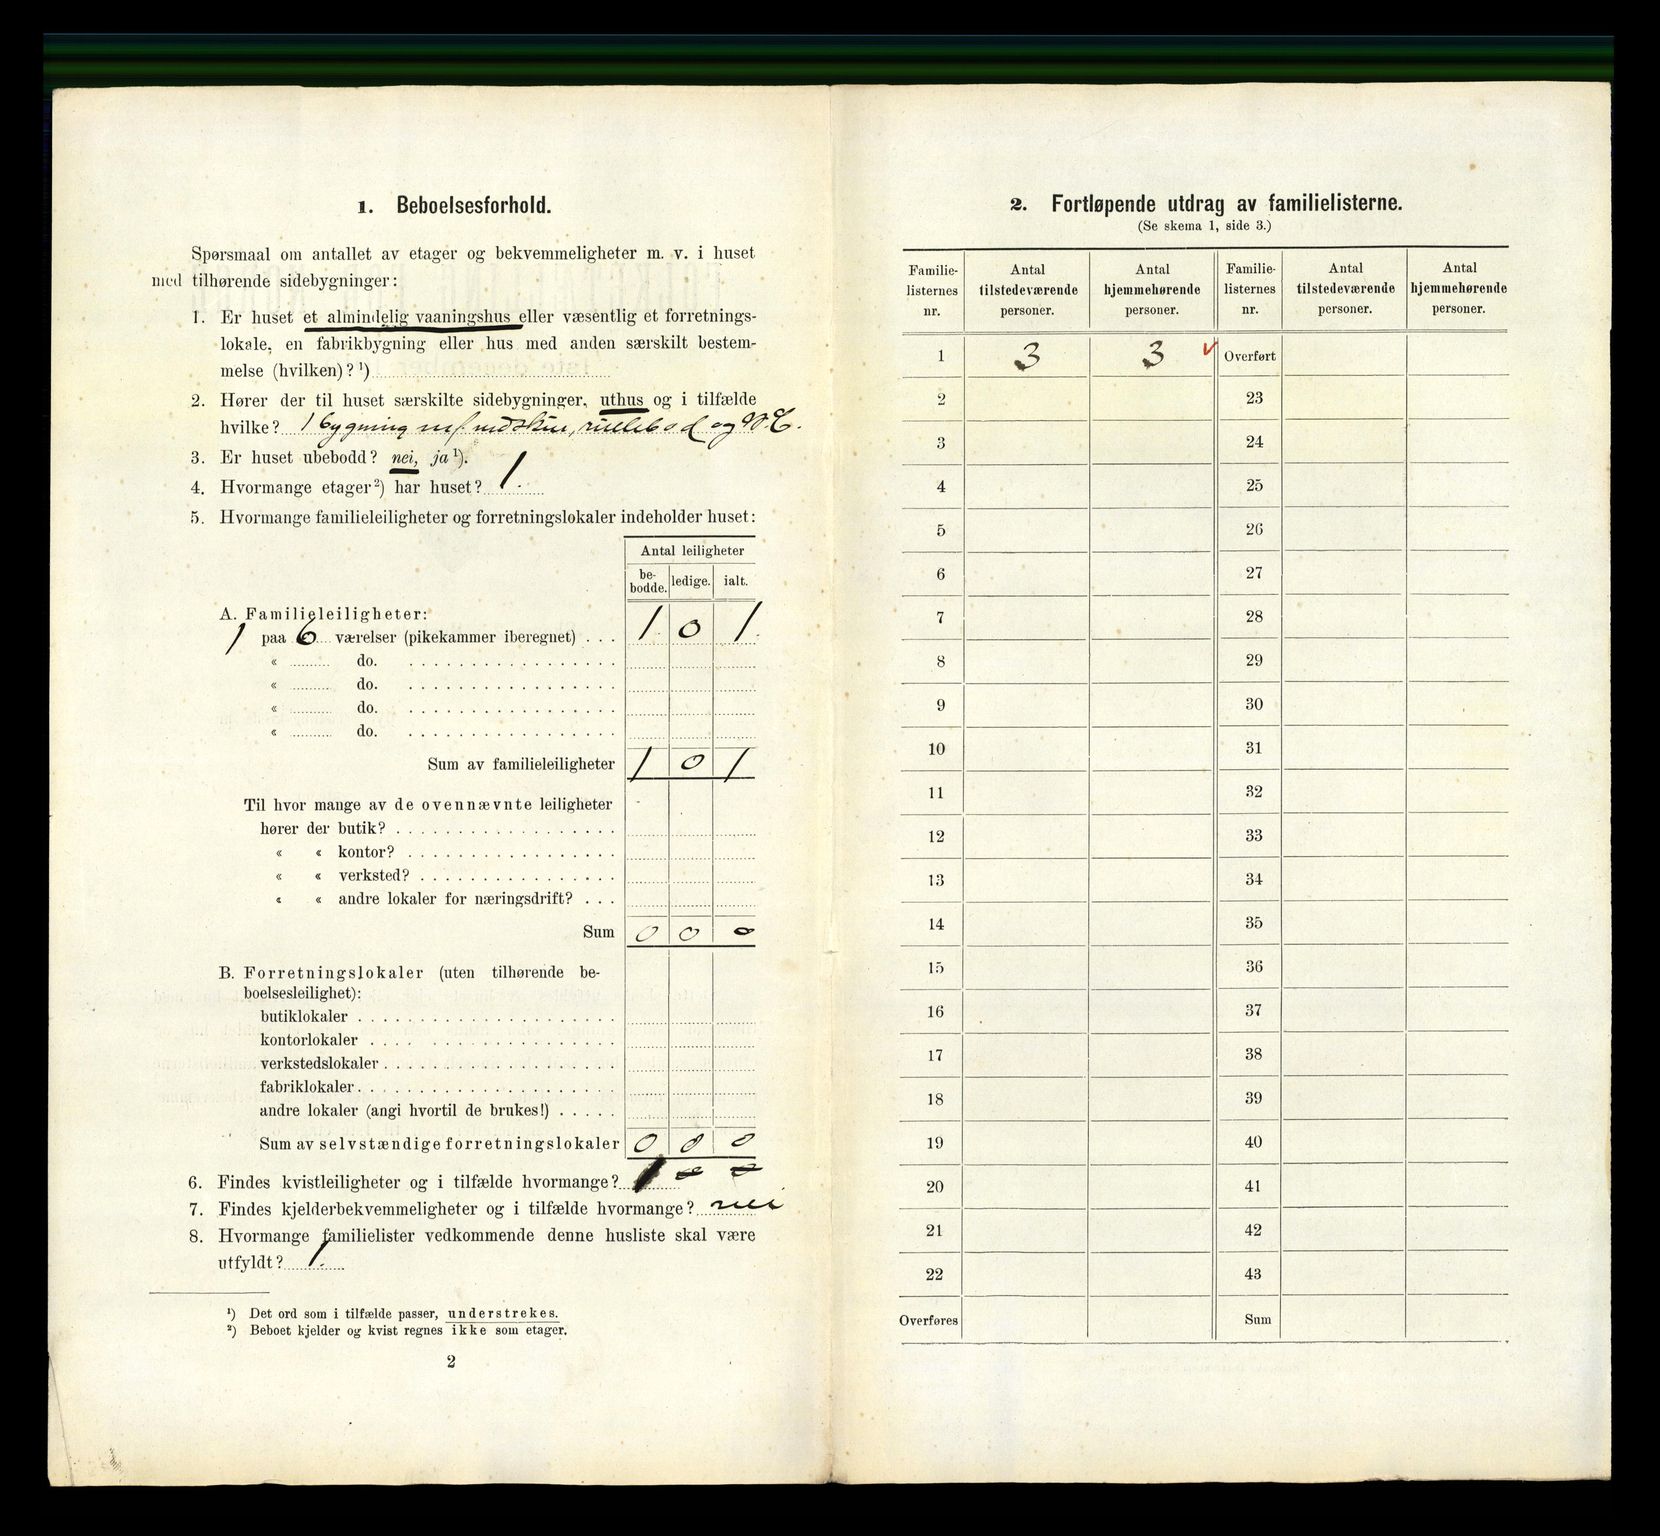 1. Beboelsesforhold.
Spørsmaal om antallet av etager og bekvemmeligheter m. v. i huset
med tilhørende sidebygninger:
1. Er huset et almindelig vaaningshus eller væsentlig et forretnings-
lokale, en fabrikbygning eller hus med anden særskilt bestem-
melse (hvilken)? ¹)
2. Hører der til huset særskilte sidebygninger, uthus og i tilfælde
hvilke? 1 bygning m/ vedskur, rullebod og W.C.
3. Er huset ubebodd? nei, ja ¹).
4. Hvormange etager ²) har huset? 1.
5. Hvormange familieleiligheter og forretningslokaler indeholder huset:
Antal leiligheter
be-
bodde. ledige. ialt.
A. Familieleiligheter:
1 paa 6 værelser (pikekammer iberegnet) . . . 1 0 1.
« do.
« do.
« do.
« do.
Sum av familieleiligheter 1 0 1
Til hvor mange av de ovennævnte leiligheter
hører der butik?
« « kontor?
« « verksted?
« « andre lokaler for næringsdrift? . . .
Sum 0 0 0
B. Forretningslokaler (uten tilhørende be-
boelsesleilighet):
butiklokaler
kontorlokaler
verkstedslokaler
fabriklokaler
andre lokaler (angi hvortil de brukes!)
Sum av selvstændige forretningslokaler 0 0 0
6. Findes kvistleiligheter og i tilfælde hvormange? 1 0 0
7. Findes kjelderbekvemmeligheter og i tilfælde hvormange? nei
8. Hvormange familielister vedkommende denne husliste skal være
utfyldt? 1.
¹) Det ord som i tilfælde passer, understrekes.
²) Beboet kjelder og kvist regnes ikke som etager.
2
2. Fortløpende utdrag av familielisterne.
(Se skema 1, side 3.)
Familie-
listernes
nr.
Antal
tilstedeværende
personer.
Antal
hjemmehørende
personer.
Familie-
listernes
nr.
Antal
tilstedeværende
personer.
Antal
hjemmehørende
personer.
1 3 3 v Overført
2 23
3 24
4 25
5 26
6 27
7 28
8 29
9 30
10 31
11 32
12 33
13 34
14 35
15 36
16 37
17 38
18 39
19 40
20 41
21 42
22 43
Overføres Sum